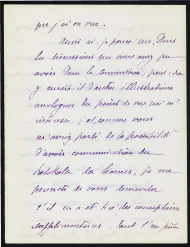 que j'ai en vue.
Aussi ai-je pensé que, dans
les discussions que vous avez pu
avoir dans la commission, peut-être
y aurait-il d'autres illustrations
analogues au point de vue qui m'
intéresse ; et, comme vous
m'aviez parlé de la possibilité
d'avoir communication du
de Cannes, je me
permets de vous demander
s'il en a été tiré des exemplaires
supplémentaires, dont l'on